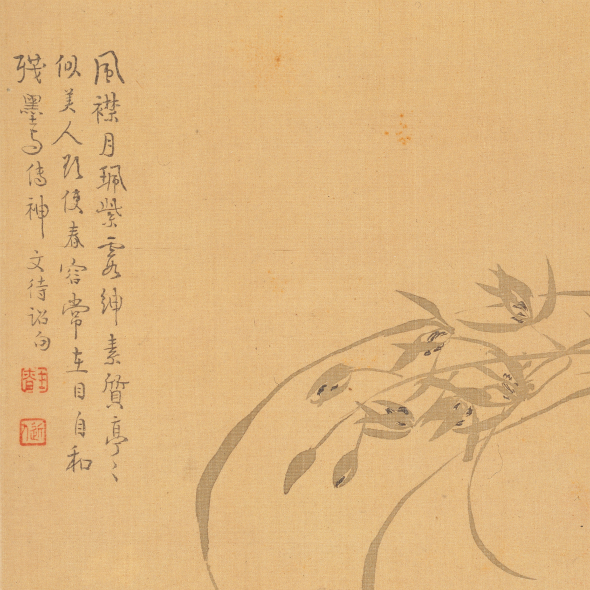 風襟月珮紫霞紳素質亭〻
似美人欲使春容常在目自和
殘墨為傳神 文待詔句